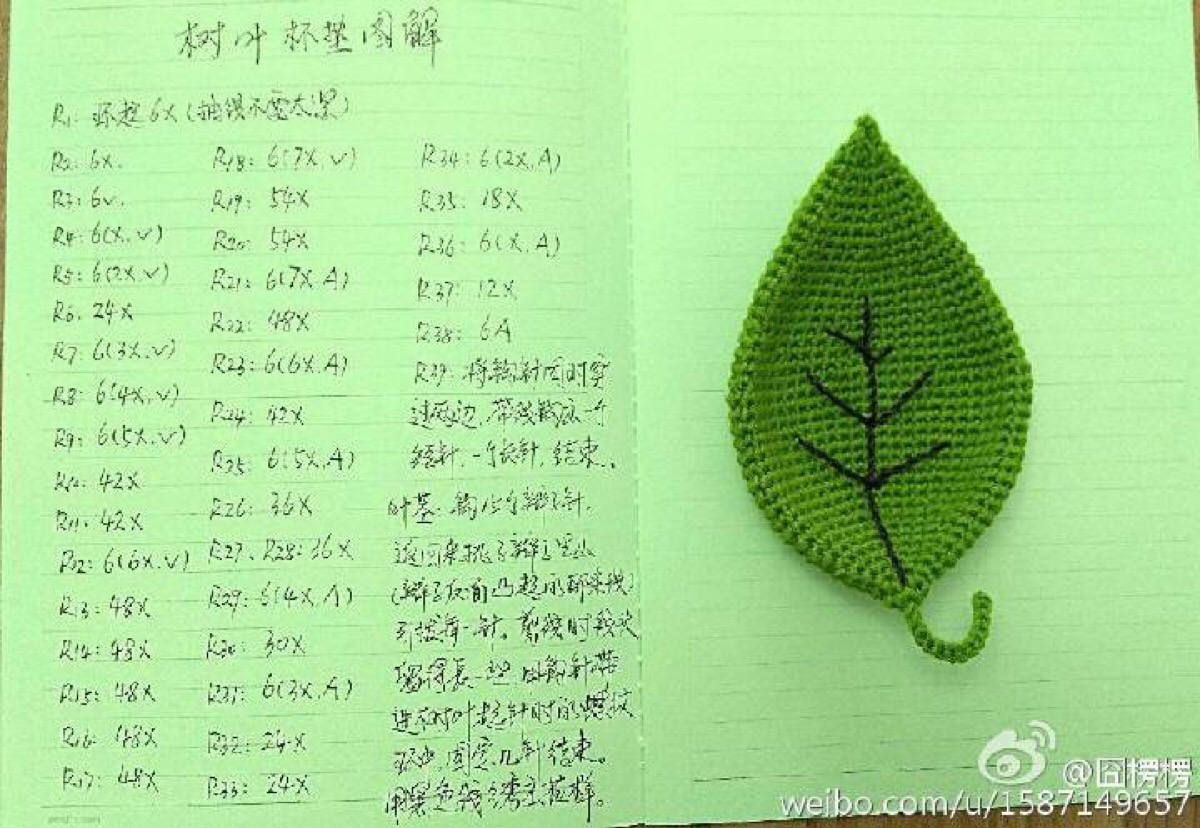 树叶杯垫图解
R1: 环起6X(抽线不要太紧)
R2: 6X.
R3: 6V.
R4: 6(X.V)
R5: 6(2X.V)
R6. 24X
R7: 6(3X.V)
R8: 6(4X.V)
R9: 6(5X.V)
R10. 42X
R11. 42X
R12: 6(6X.V)
R13: 48X
R14: 48X
R15: 48X
R16. 48X
R17: 48X
R18: 6(7X.V)
R19: 54X
R20: 54X
R21: 6(7X.A)
R22: 48X
R23: 6(6X.A)
R24: 42X
R25: 6(5X.A)
R26: 36X
R27. R28: 36X
R29: 6(4X.A)
R30: 30X
R31: 6(3X.A)
R32: 24X
R33: 24X
R34: 6(2X.A)
R35: 18X
R36: 6(X.A)
R37: 12X
R38: 6A
R39: 将钩针同时穿
过两边,带线钩成一个
短针,一个长针,结束。
叶茎: 钩15个辫子针,
返回来挑了辫子里山
(辫子反面凸起的那条线)
引拔每一针。剪线时线头
留得长一些 用钩针带
进树叶起针时的
固定几针结束。
用黑色线
@囧愣愣
weibo.com/u/1587149657